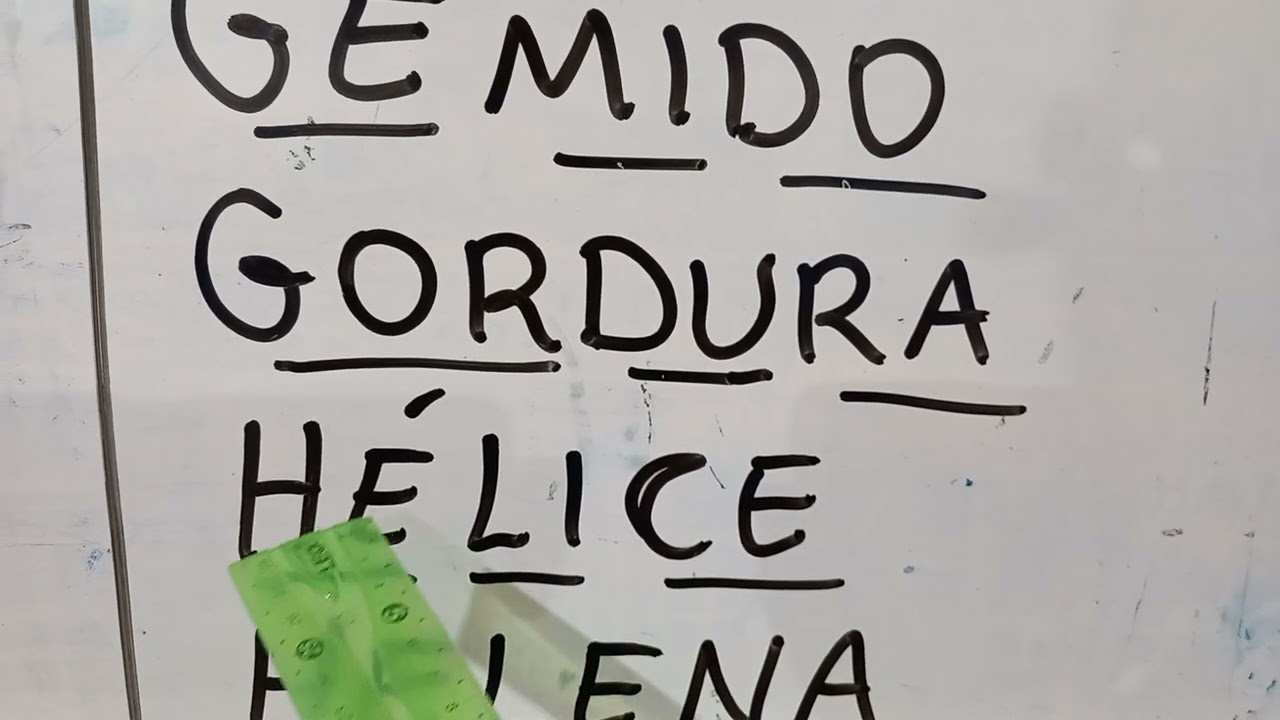 GEMIDO
GORDURA
HÉLICE